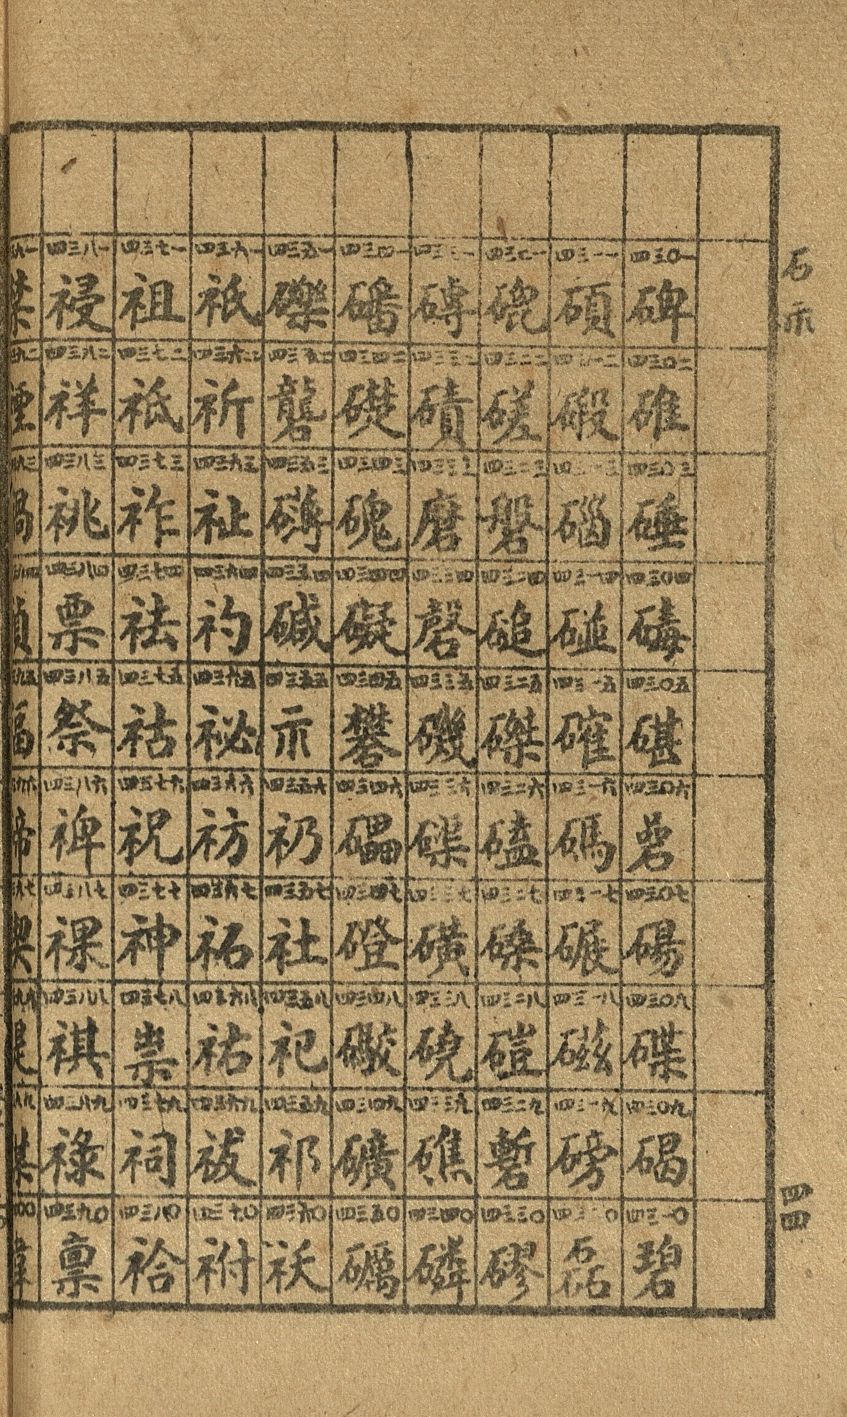 石示
四三〇一 碑 四三〇二 碓 四三〇三 硾 四三〇四 碡 四三〇五 碪 四三〇六 碞 四三〇七 碭 四三〇八 碟 四三〇九 碣 四三一〇 碧
四三一一 碩 四三一二 碬 四三一三 碯 四三一四 碰 四三一五 確 四三一六 碼 四三一七 碾 四三一八 磁 四三一九 磅 四三二〇 磊
四三二一 磇 四三二二 磋 四三二三 磐 四三二四 磓 四三二五 磔 四三二六 磕 四三二七 磉 四三二八 磑 四三二九 磛 四三三〇 磟
四三三一 磚 四三三二 磧 四三三三 磨 四三三四 磬 四三三五 磯 四三三六 磲 四三三七 磺 四三三八 磽 四三三九 礁 四三四〇 磷
四三四一 磻 四三四二 礎 四三四三 磈 四三四四 礙 四三四五 礬 四三四六 礧 四三四七 磴 四三四八 礉 四三四九 礦 四三五〇 礪
四三五一 礫 四三五二 礱 四三五三 礴 四三五四 碱 四三五五 示 四三五六 礽 四三五七 社 四三五八 祀 四三五九 祁 四三六〇 祅
四三六一 祇 四三六二 祈 四三六三 祉 四三六四 礿 四三六五 祕 四三六六 祊 四三六七 祏 四三六八 祐 四三六九 祓 四三七〇 祔
四三七一 祖 四三七二 祗 四三七三 祚 四三七四 祛 四三七五 祜 四三七六 祝 四三七七 神 四三七八 祟 四三七九 祠 四三八〇 祫
四三八一 祲 四三八二 祥 四三八三 祧 四三八四 票 四三八五 祭 四三八六 裨 四三八七 祼 四三八八 祺 四三八九 祿 四三九〇 禀
四四